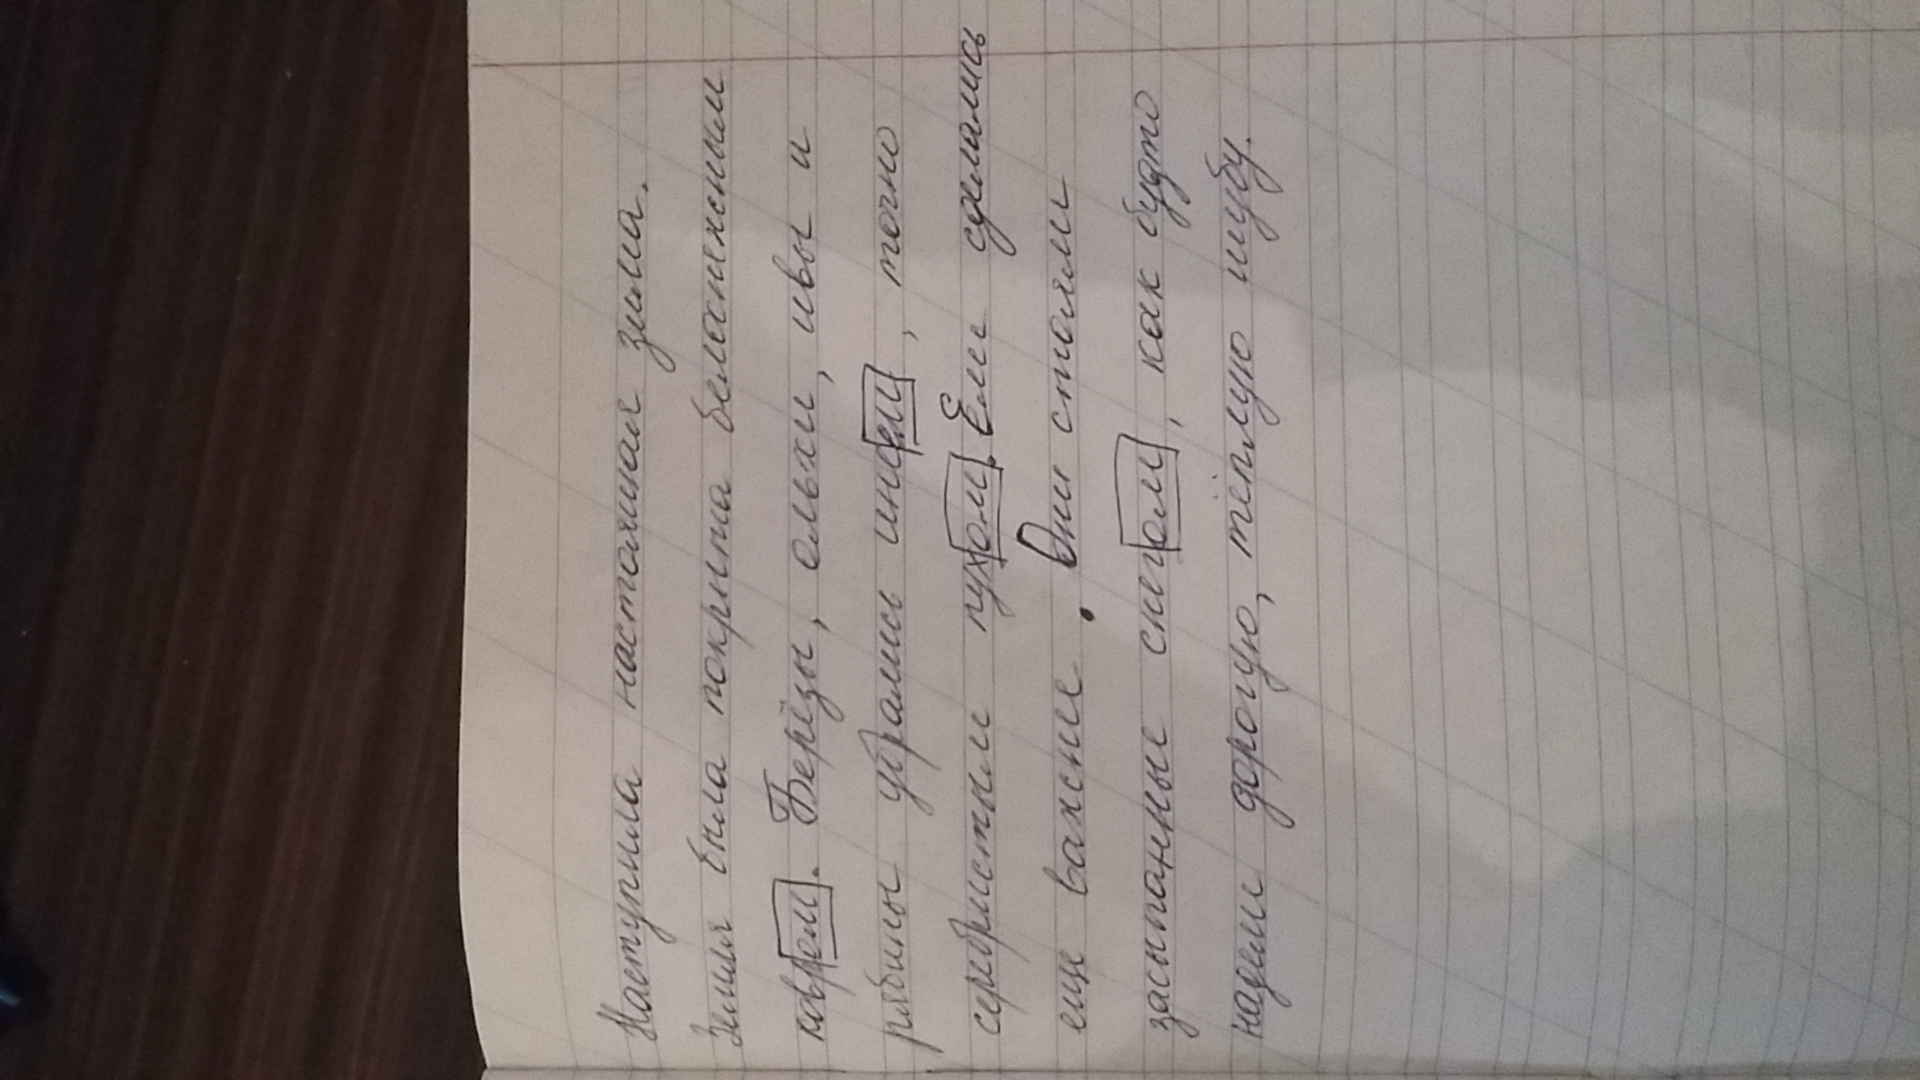 Наступила настоящая зима.
Земля была покрыта белоснежным
ковром. Берёзы, ольхи, ивы и
рябины убрались инеем, точно
серебристым пухом. Ели сделались
еще важнее. Они стояли
засыпанные снегом, как будто
надели дорогую, тёплую шубу.